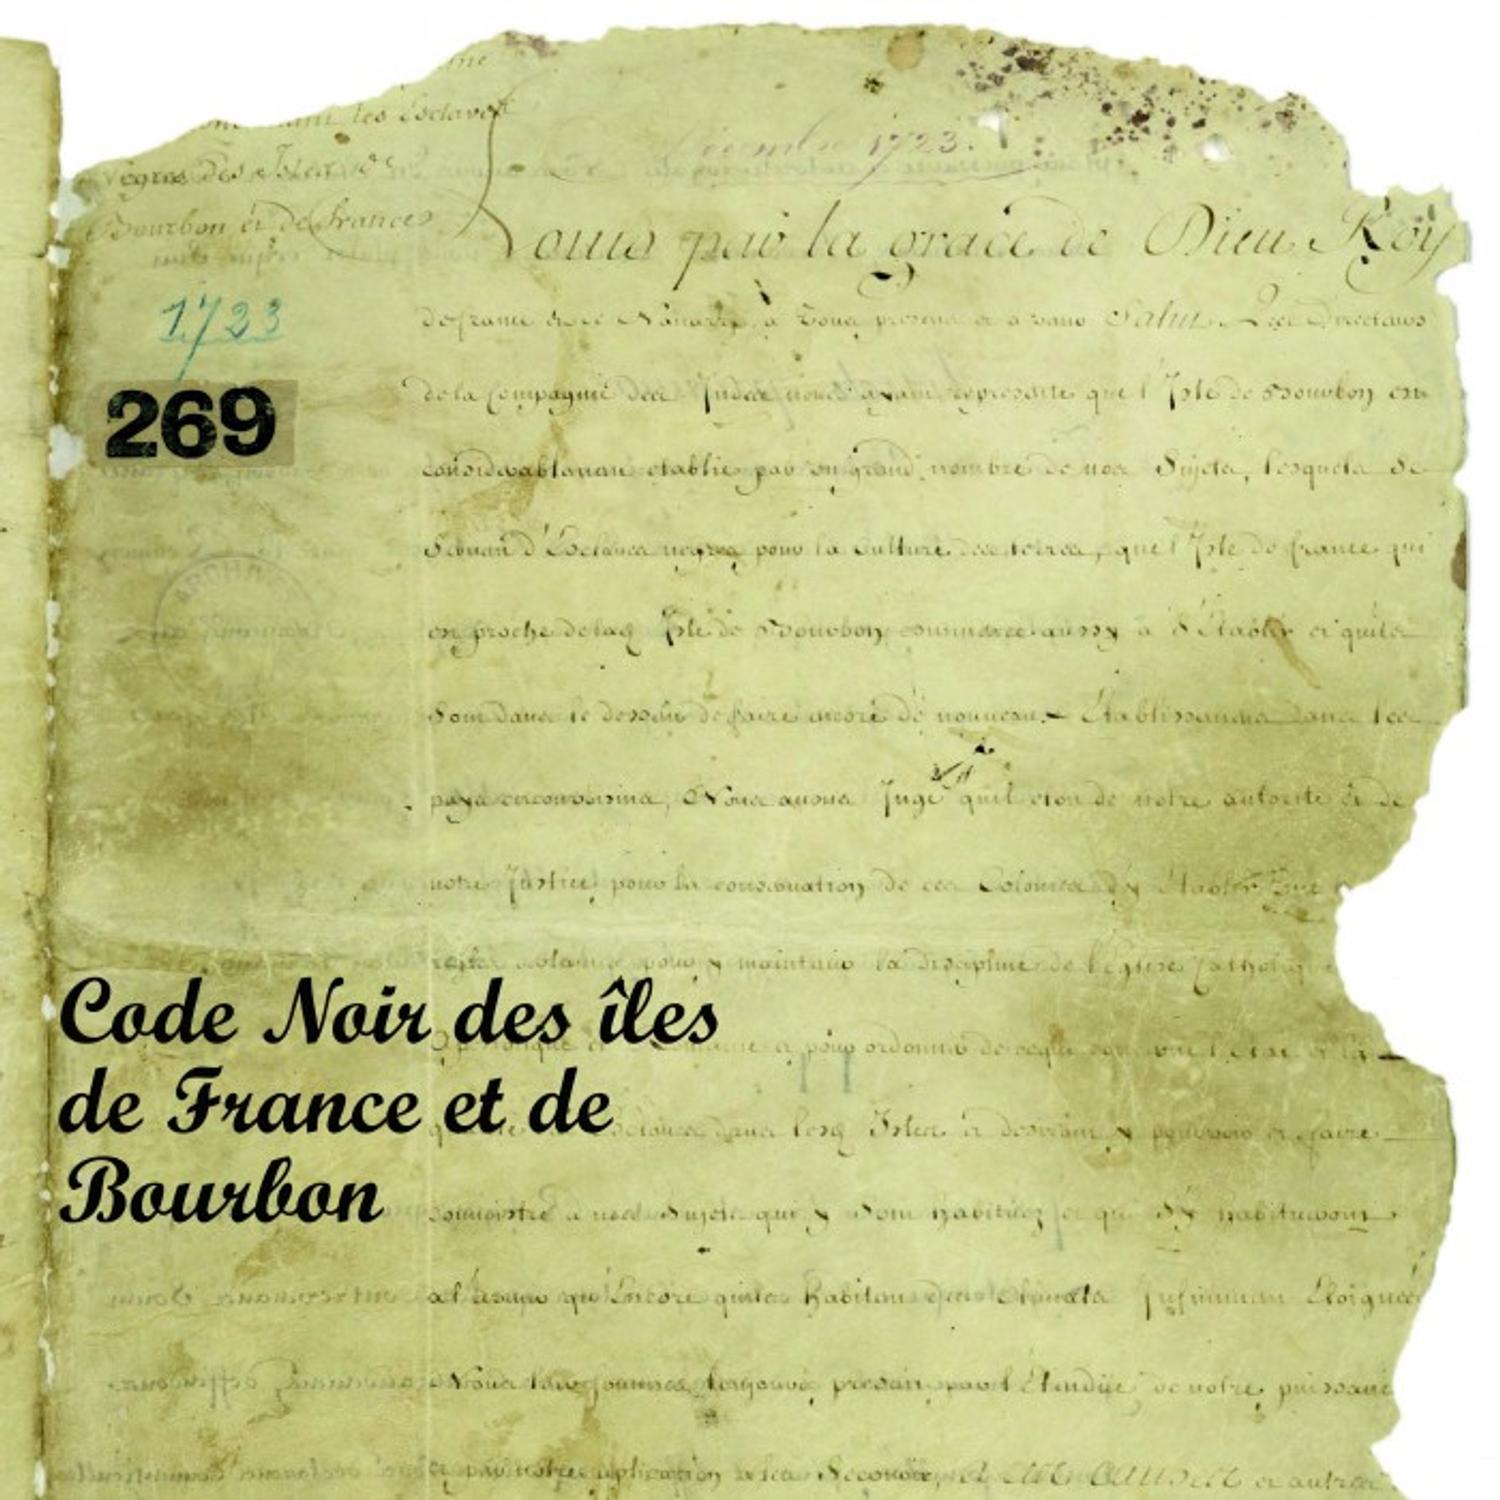 les Esclaves
negres des Isles de
Bourbon et de france
1723.
1723
269
Louis par la grace de Dieu Roy
de france et de Navarre, a tous presens et a venir Salut. Les Directeurs
de la Compagnie des Indes nous ayant representé que l'Isle de Bourbon est
considerablement etablie par un grand nombre de nos Sujets, lesquels se
servent d'Esclaves negres pour la culture des terres, que l'Isle de france qui
est proche de lad Isle de Bourbon commence aussy a s'Etablir et qu'ils
sont dans le dessein de faire encore de nouveaux Etablissemens dans les
pays circonvoisins, Nous avons Jugé qu'il etoit de notre autorité et de
notre Justice pour la conservation de ces Colonies d'y Etablir Une
pour y maintenir la discipline de l'Eglise Catholique
et pour ordonner de ce qui
Esclaves dans lesd Isles et desirant y pourvoir et faire
connoistre a nos Sujets qui y sont habituez et qui s'y habitueront
a l'avenir qu'Encore qu'ils habitent des Climats Infiniment Eloignés
Nous leur sommes toujours present par l'Etendue de notre puissance
et par notre aplication a les Secourir, et autres
Code Noir des îles
de France et de
Bourbon